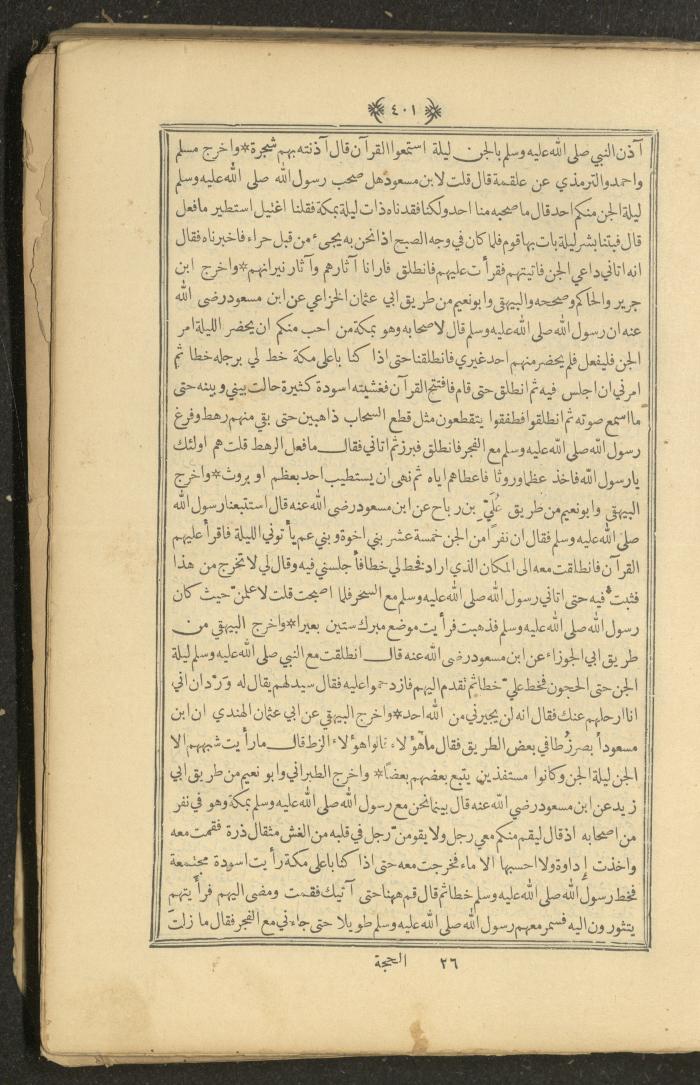 ٤٠١
آذن النبي صلى الله عليه وسلم بالجن ليلة استمعوا القرآن قال آذنته بهم شجرة * واخرج مسلم
واحمد والترمذي عن علقمة قال قلت لابن مسعود هل صحب رسول الله صلى الله عليه وسلم
ليلة الجن منكم احد قال ما صحبه منا احد ولكنا فقدناه ذات ليلة بمكة فقلنا اغتيل استطير ما فعل
قال فبتنا بشر ليلة بات بها قوم فلما كان في وجه الصبح اذا نحن به يجيء من قبل حراء فاخبرناه فقال
انه اتاني داعي الجن فاتيتهم فقرأت عليهم فانطلق فارانا آثارهم وآثار نيرانهم * واخرج ابن
جرير والحاكم وصححه والبيهقي وابو نعيم من طريق ابي عثمان الخزاعي عن ابن مسعود رضى الله
عنه ان رسول الله صلى الله عليه وسلم قال لاصحابه وهو بمكة من احب منكم ان يحضر الليلة امر
الجن فليفعل فلم يحضر منهم احد غيري فانطلقنا حتى اذا كنا باعلى مكة خط لي برجله خطا ثم
امرني ان اجلس فيه ثم انطلق حتى قام فافتتح القرآن فغشيته اسودة كثيرة حالت بيني وبينه حتى
ما اسمع صوته ثم انطلقوا فطفقوا يتقطعون مثل قطع السحاب ذاهبين حتى بقي منهم رهط وفرغ
رسول الله صلى الله عليه وسلم مع الفجر فانطلق فبرز ثم اتاني فقال ما فعل الرهط قلت هم اولئك
يا رسول الله فاخذ عظما وروثا فاعطاهم اياه ثم نهى ان يستطيب احد بعظم او بروث * واخرج
البيهقي وابو نعيم من طريق عُلَيّ بن رباح عن ابن مسعود رضى الله عنه قال استتبعنا رسول الله
صلى الله عليه وسلم فقال ان نفرًا من الجن خمسة عشر بني اخوة وبني عم يأتوني الليلة فاقرأ عليهم
القرآن فانطلقت معه الى المكان الذي اراد فخط لي خطا فأجلسني فيه وقال لي لا تخرج من هذا
فثبتُّ فيه حتى اتاني رسول الله صلى الله عليه وسلم مع السحر فلما اصبحت قلت لاعلمنّ حيث كان
رسول الله صلى الله عليه وسلم فذهبت فرأيت موضع مبرك ستين بعيرا * واخرج البيهقي من
طريق ابي الجوزاء عن ابن مسعود رضى الله عنه قال انطلقت مع النبي صلى الله عليه وسلم ليلة
الجن حتى الحجون فخط عليّ خطا ثم تقدم اليهم فازدحموا عليه فقال سيد لهم يقال له وَرْدان اني
انا ارحلهم عنك فقال انه لن يجيرني من الله احد * واخرج البيهقي عن ابي عثمان الهندي ان ابن
مسعود أبصر زُطا في بعض الطريق فقال ما هؤلاء قالوا هؤلاء الزط قال ما رأيت شبههم الا
الجن ليلة الجن وكانوا مستفذين يتبع بعضهم بعضًا * واخرج الطبراني وابو نعيم من طريق ابي
زيد عن ابن مسعود رضي الله عنه قال بينما نحن مع رسول الله صلى الله عليه وسلم بمكة وهو في نفر
من اصحابه اذ قال ليقم منكم معي رجل ولا يقومنّ رجل في قلبه من الغش مثقال ذرة فقمت معه
واخذت إداوة ولا احسبها الا ماء فخرجت معه حتى اذا كنا باعلى مكة رأيت اسودة مجتمعة
فخط رسول الله صلى الله عليه وسلم خطا ثم قال قم ههنا حتى آتيك فقمت ومضى اليهم فرأيتهم
يتثورون اليه فسمر معهم رسول الله صلى الله عليه وسلم طويلا حتى جاءني مع الفجر فقال ما زلت
٢٦ الحجة